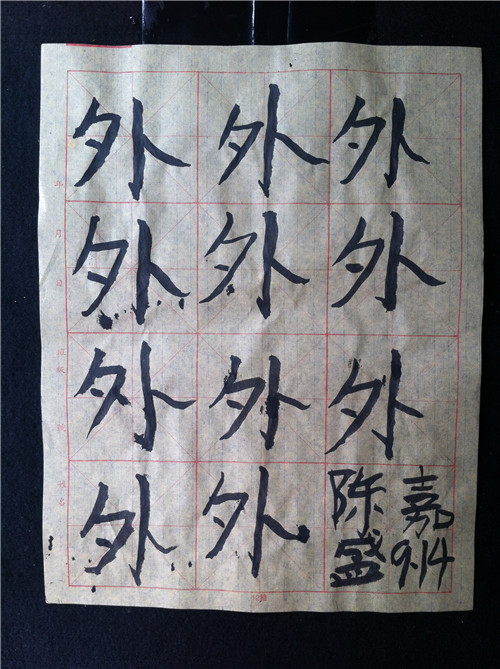 外外外
外外外
外外外
外外
陈嘉
盛9.14
年
月
日